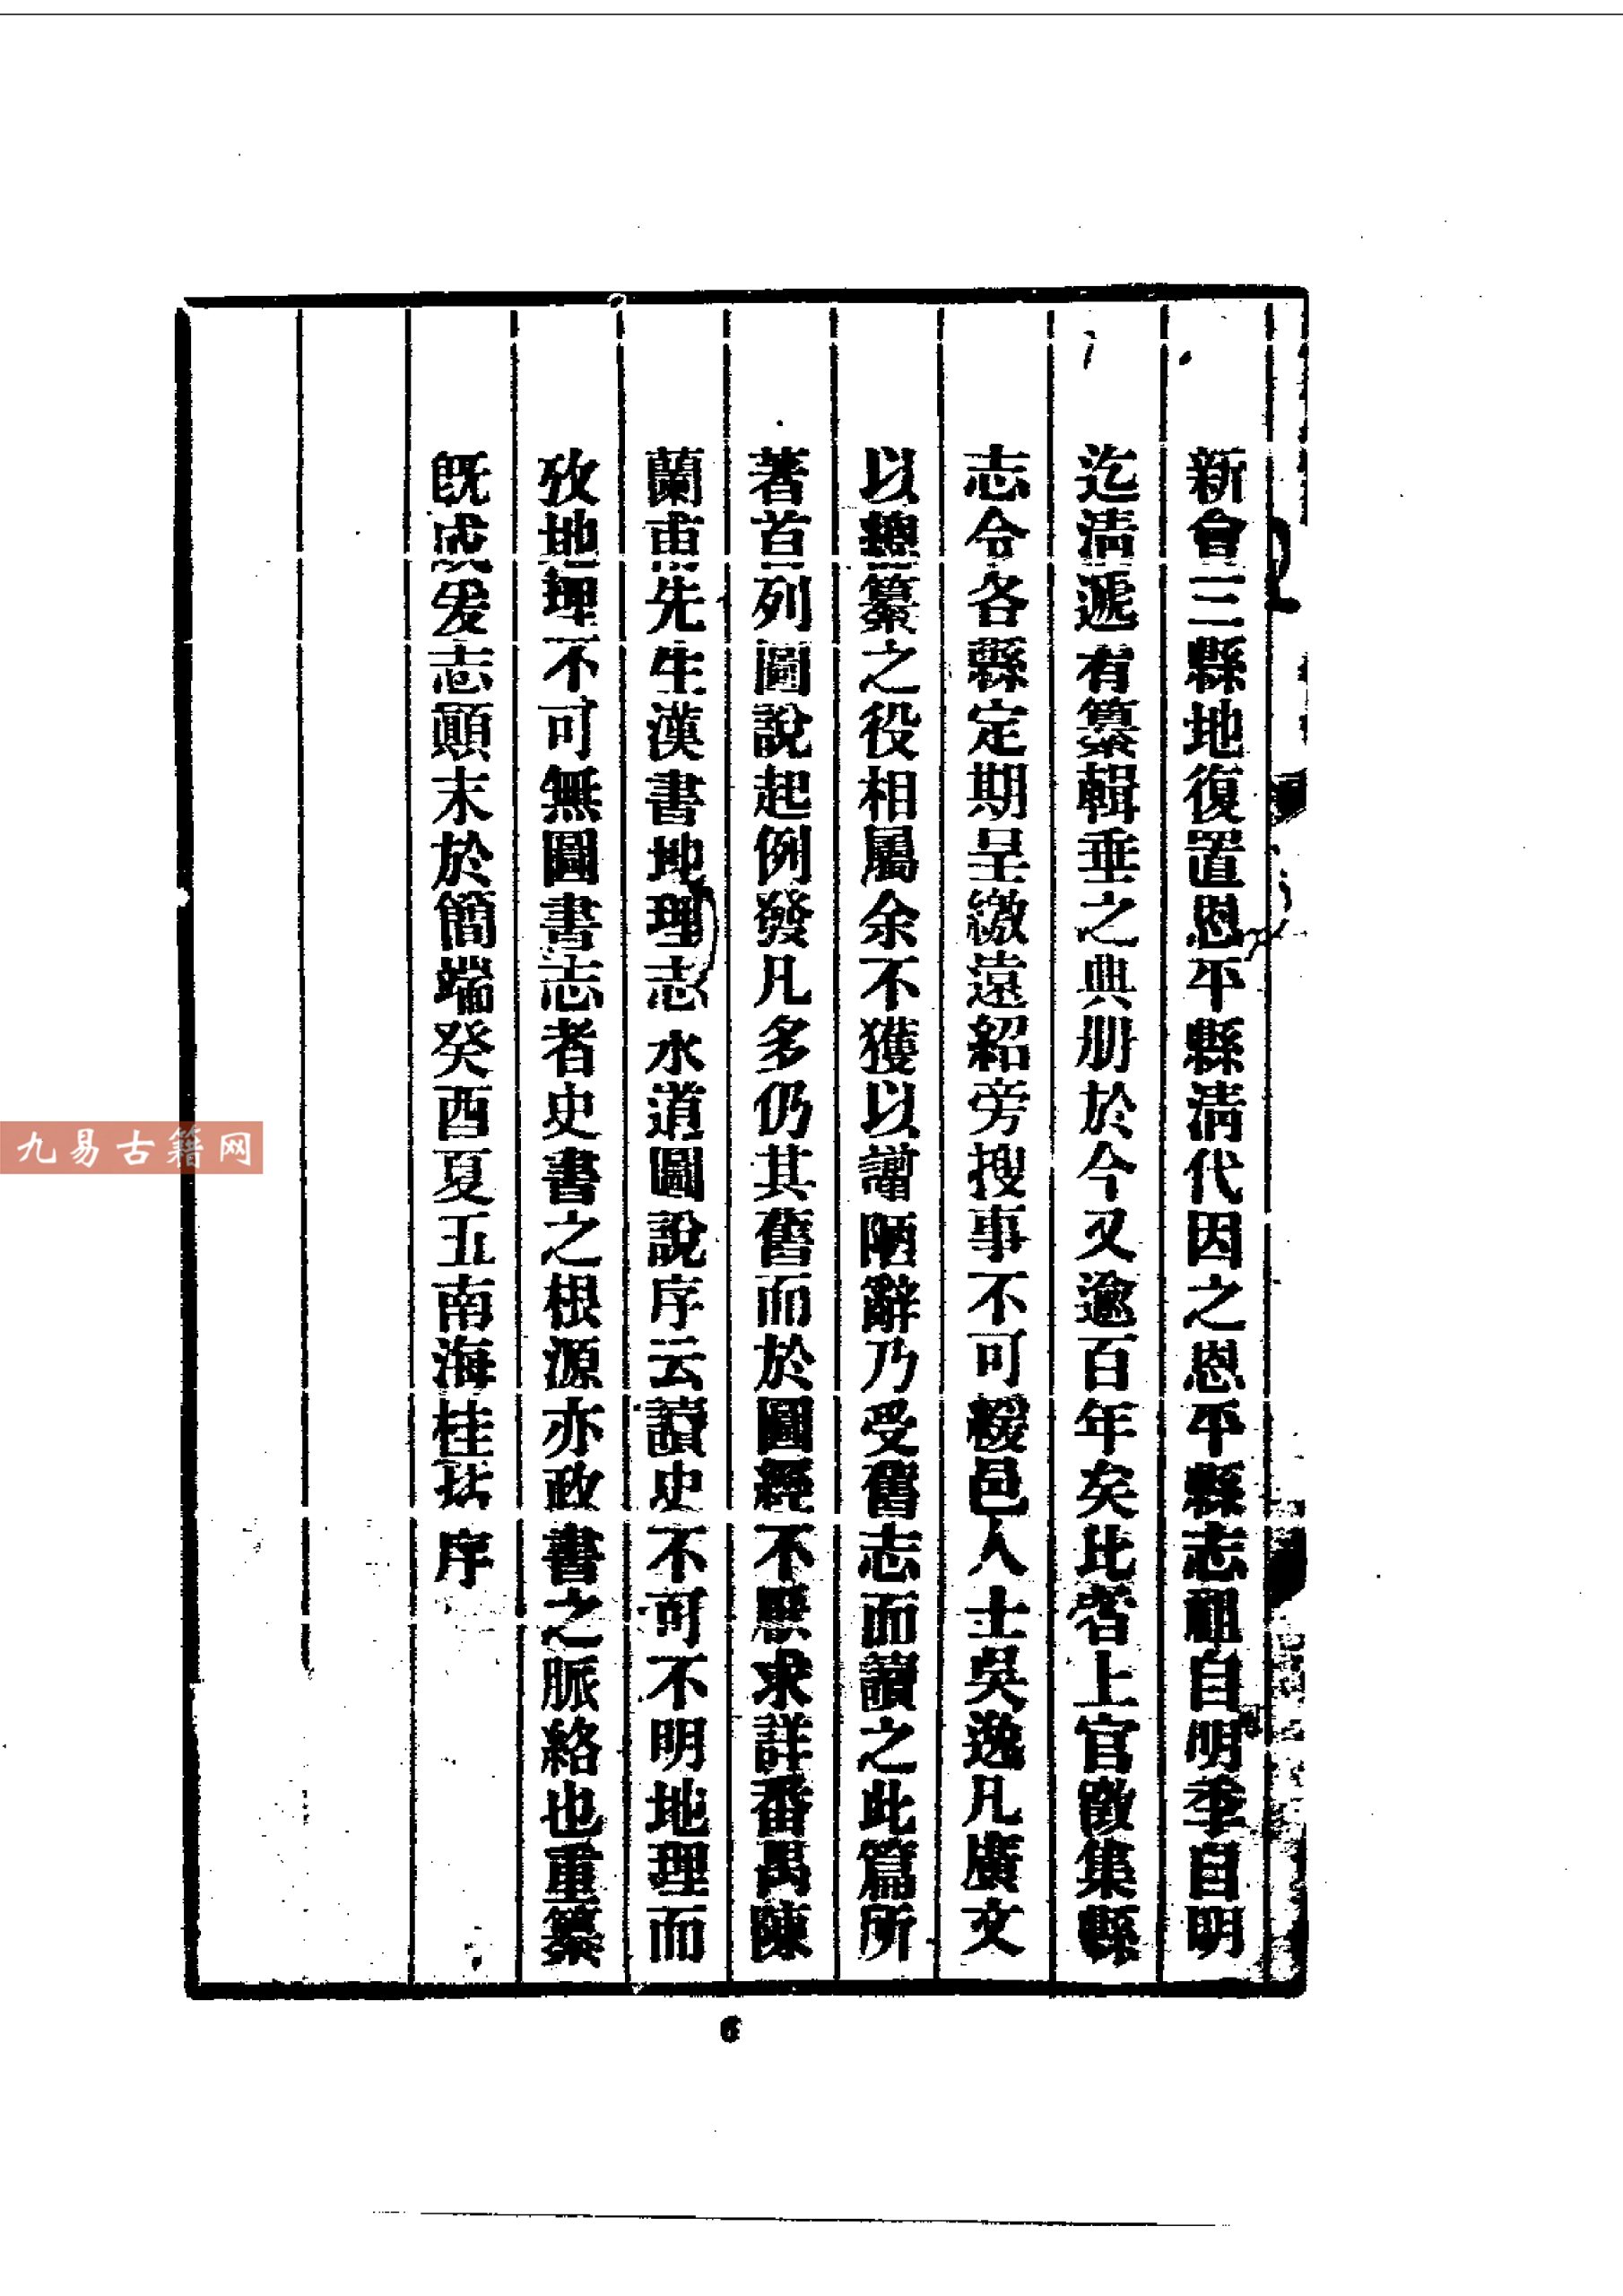 新會三縣地復置恩平縣清代因之恩平縣志祖自明季自明
迄清遞有纂輯垂之典册於今又逾百年矣比者上官徵集縣
志令各縣定期呈繳遠紹旁搜事不可緩邑人士吳逸凡廣文
以總纂之役相屬余不獲以譾陋辭乃受舊志而讀之此篇所
著首列圖說起例發凡多仍其舊而於圖經不厭求詳番禺陳
蘭甫先生漢書地理志水道圖說序云讀史不可不明地理而
攷地理不可無圖書志者史書之根源亦政書之脈絡也重纂
既成爰志顚末於簡端癸酉夏五南海桂坫序
6
九易古籍网